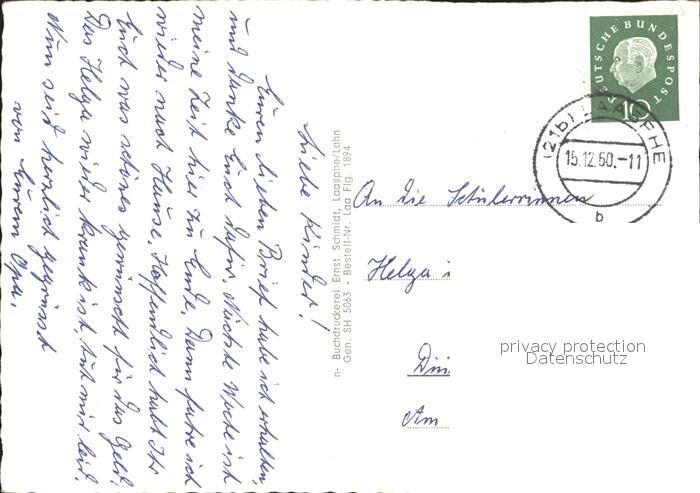 Liebe Kinder!
Euren lieben Brief habe ich erhalten,
und danke Euch dafür. Nächste Woche ist
meine Zeit hier zu Ende. Dann fahre ich
wieder nach Hause. Hoffendlich habt Ihr
Euch was schönes gewünscht für das Geld.
Das Helga wieder krank ist tut mir leid.
Nun seid herzlich gegrüsst
von Eurem Opa.
n- Buchdruckerei Ernst Schmidt, Laasphe/Lahn
Gen. SH 5063 - Bestell-Nr. Laa Flg. 1894
DEUTSCHE BUNDESPOST
10
(21b) LAASPHE
15.12.60.-11
b
An die Schülerinnen
Helga
Am
privacy protection
Datenschutz